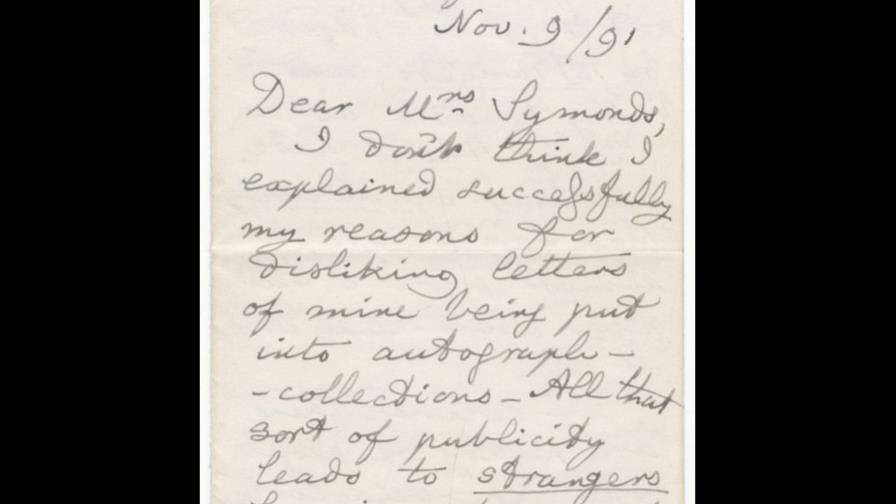 Nov. 9/91
Dear Mrs Symonds,
I don't think I
explained successfully
my reasons for
disliking letters
of mine being put
into autograph-
-collections - All that
sort of publicity
leads to strangers